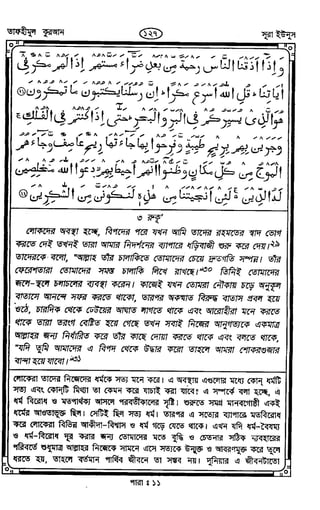 তাফহীমুল কুরআন
১২৭
সূরা ইউনুস
وَإِذَا أَذَقْنَا النَّاسَ رَحْمَةً مِّنْ بَعْدِ ضَرَّاءَ مَسَّتْهُمْ إِذَا لَهُمْ مَّكْرٌ فِي
آيَاتِنَا ۚ قُلِ اللَّهُ أَسْرَعُ مَكْرًا ۚ إِنَّ رُسُلَنَا يَكْتُبُونَ مَا تَمْكُرُونَ
هُوَ الَّذِي يُسَيِّرُكُمْ فِي الْبَرِّ وَالْبَحْرِ ۖ حَتَّىٰ إِذَا كُنْتُمْ فِي الْفُلْكِ ۚ
وَجَرَيْنَ بِهِمْ بِرِيحٍ طَيِّبَةٍ وَفَرِحُوا بِهَا جَاءَتْهَا رِيحٌ عَاصِفٌ وَجَاءَهُمُ
الْمَوْجُ مِنْ كُلِّ مَكَانٍ وَظَنُّوا أَنَّهُمْ أُحِيطَ بِهِمْ ۙ دَعَوُا اللَّهَ مُخْلِصِينَ
لَهُ الدِّينَ ۚ لَئِنْ أَنْجَيْتَنَا مِنْ هَٰذِهِ لَنَكُونَنَّ مِنَ الشَّاكِرِينَ
৩ রুকূ'
লোকদের অবস্থা হচ্ছে, বিপদের পরে যখন আমি তাদের রহমতের স্বাদ ভোগ
করতে দেই তখনই তারা আমার নিদর্শনের ব্যাপারে ধড়িবাজী শুরু করে দেয়।২৯
তাদেরকে বলো, "আল্লাহ তাঁর চালাকিতে তোমাদের চেয়ে দ্রুতগতি সম্পন্ন। তাঁর
ফেরেশতারা তোমাদের সমস্ত চালাকি লিখে রাখছে।"৩০ তিনিই তোমাদের
জলে-স্থলে চলাচলের ব্যবস্থা করেন। কাজেই যখন তোমরা নৌকায় চড়ে অনুকূল
বাতাসে আনন্দে সফর করতে থাকো, তারপর অকস্মাত বিরুদ্ধ বাতাস প্রবল হয়ে
ওঠে, চারদিক থেকে ঢেউয়ের আঘাত লাগতে থাকে এবং আরোহীরা মনে করতে
থাকে তারা তরংগ বেষ্টিত হয়ে গেছে তখন সবাই নিজের আনুগত্যকে একমাত্র
আল্লাহর জন্য নির্ধারিত করে তাঁর কাছে দোয়া করতে থাকে এবং বলতে থাকে,
"যদি তুমি আমাদের এ বিপদ থেকে উদ্ধার করো তাহলে আমরা শোকরগুজার
বান্দা হয়ে যাবো।"৩১
লোকেরা তাদের নিজেদের ধর্মকে সত্য মনে করে। এ অবস্থায় এগুলোর মধ্যে কোন্ ধর্মটি
সত্য এবং কোন্‌টি মিথ্যা তা কেমন করে যাচাই করা যাবে? এ সম্পর্কে বলা হচ্ছে, এ
ধর্ম বিরোধ ও মতপার্থক্য আসলে পরবর্তীকালের সৃষ্টি। শুরুতে সমগ্র মানবগোষ্ঠী একই
ধর্মের আওতাভুক্ত ছিল। সেটিই ছিল সত্য ধর্ম। তারপর এ সত্যের ব্যাপারে মতবিরোধ
করে লোকেরা বিভিন্ন আকীদা-বিশ্বাস ও ধর্ম গড়ে যেতে থাকে। এখন যদি ধর্ম-বৈষম্য
ও ধর্ম-বিরোধ দূর করার জন্য তোমাদের মতে বুদ্ধি ও চেতনার সঠিক ব্যবহারের
পরিবর্তে শুধুমাত্র আল্লাহর নিজেকে সামনে এসে সত্যকে উন্মুক্ত ও আবরণমুক্ত করে তুলে
ধরতে হয়, তাহলে বর্তমান পার্থিব জীবনে তা সম্ভব নয়। দুনিয়ার এ জীবনটাতো
পারা : ১১